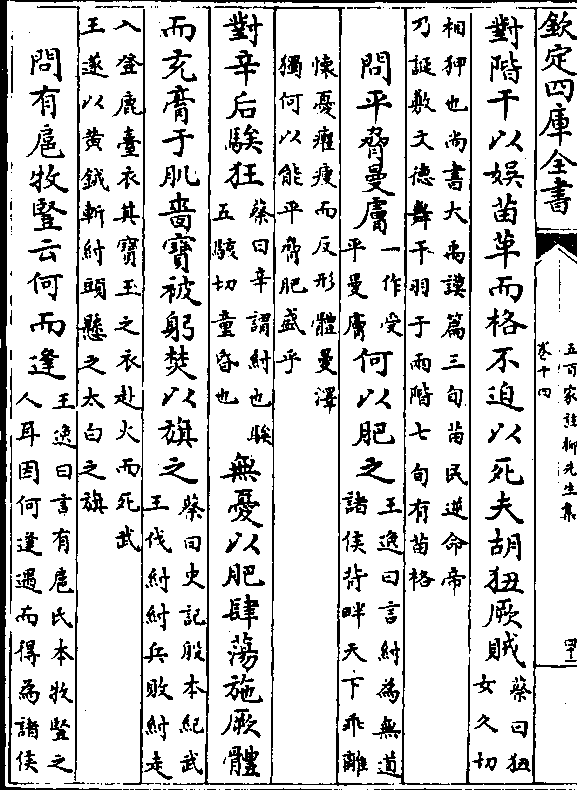 欽定四庫全書
五百家註柳先生集
卷十四
對階干以娛苗革而格不迫以死夫胡狃厥賊
蔡曰狃
女久切
相狎也尚書大禹謨篇三旬苗民逆命帝
乃誕敷文德舞干羽于兩階七旬有苗格
問平脅曼膚
一作受
平曼膚
何以肥之
王逸曰言紂為無道
諸侯背畔天下乖離
懷憂癯瘦而反形體曼澤
獨何以能平脅肥盛乎
對辛后騃狂
蔡曰辛謂紂也騃
五駭切童昏也
無憂以肥肆蕩施厥體
而充膏于肌嗇寶被躬焚以旗之
蔡曰史記殷本紀武
王伐紂紂兵敗紂走
入登鹿臺衣其寶玉之衣赴火而死武
王遂以黄鉞斬紂頭懸之太白之旗
問有扈牧豎云何而逢
王逸曰言有扈氏本牧豎之
人耳因何逢遇而得為諸侯